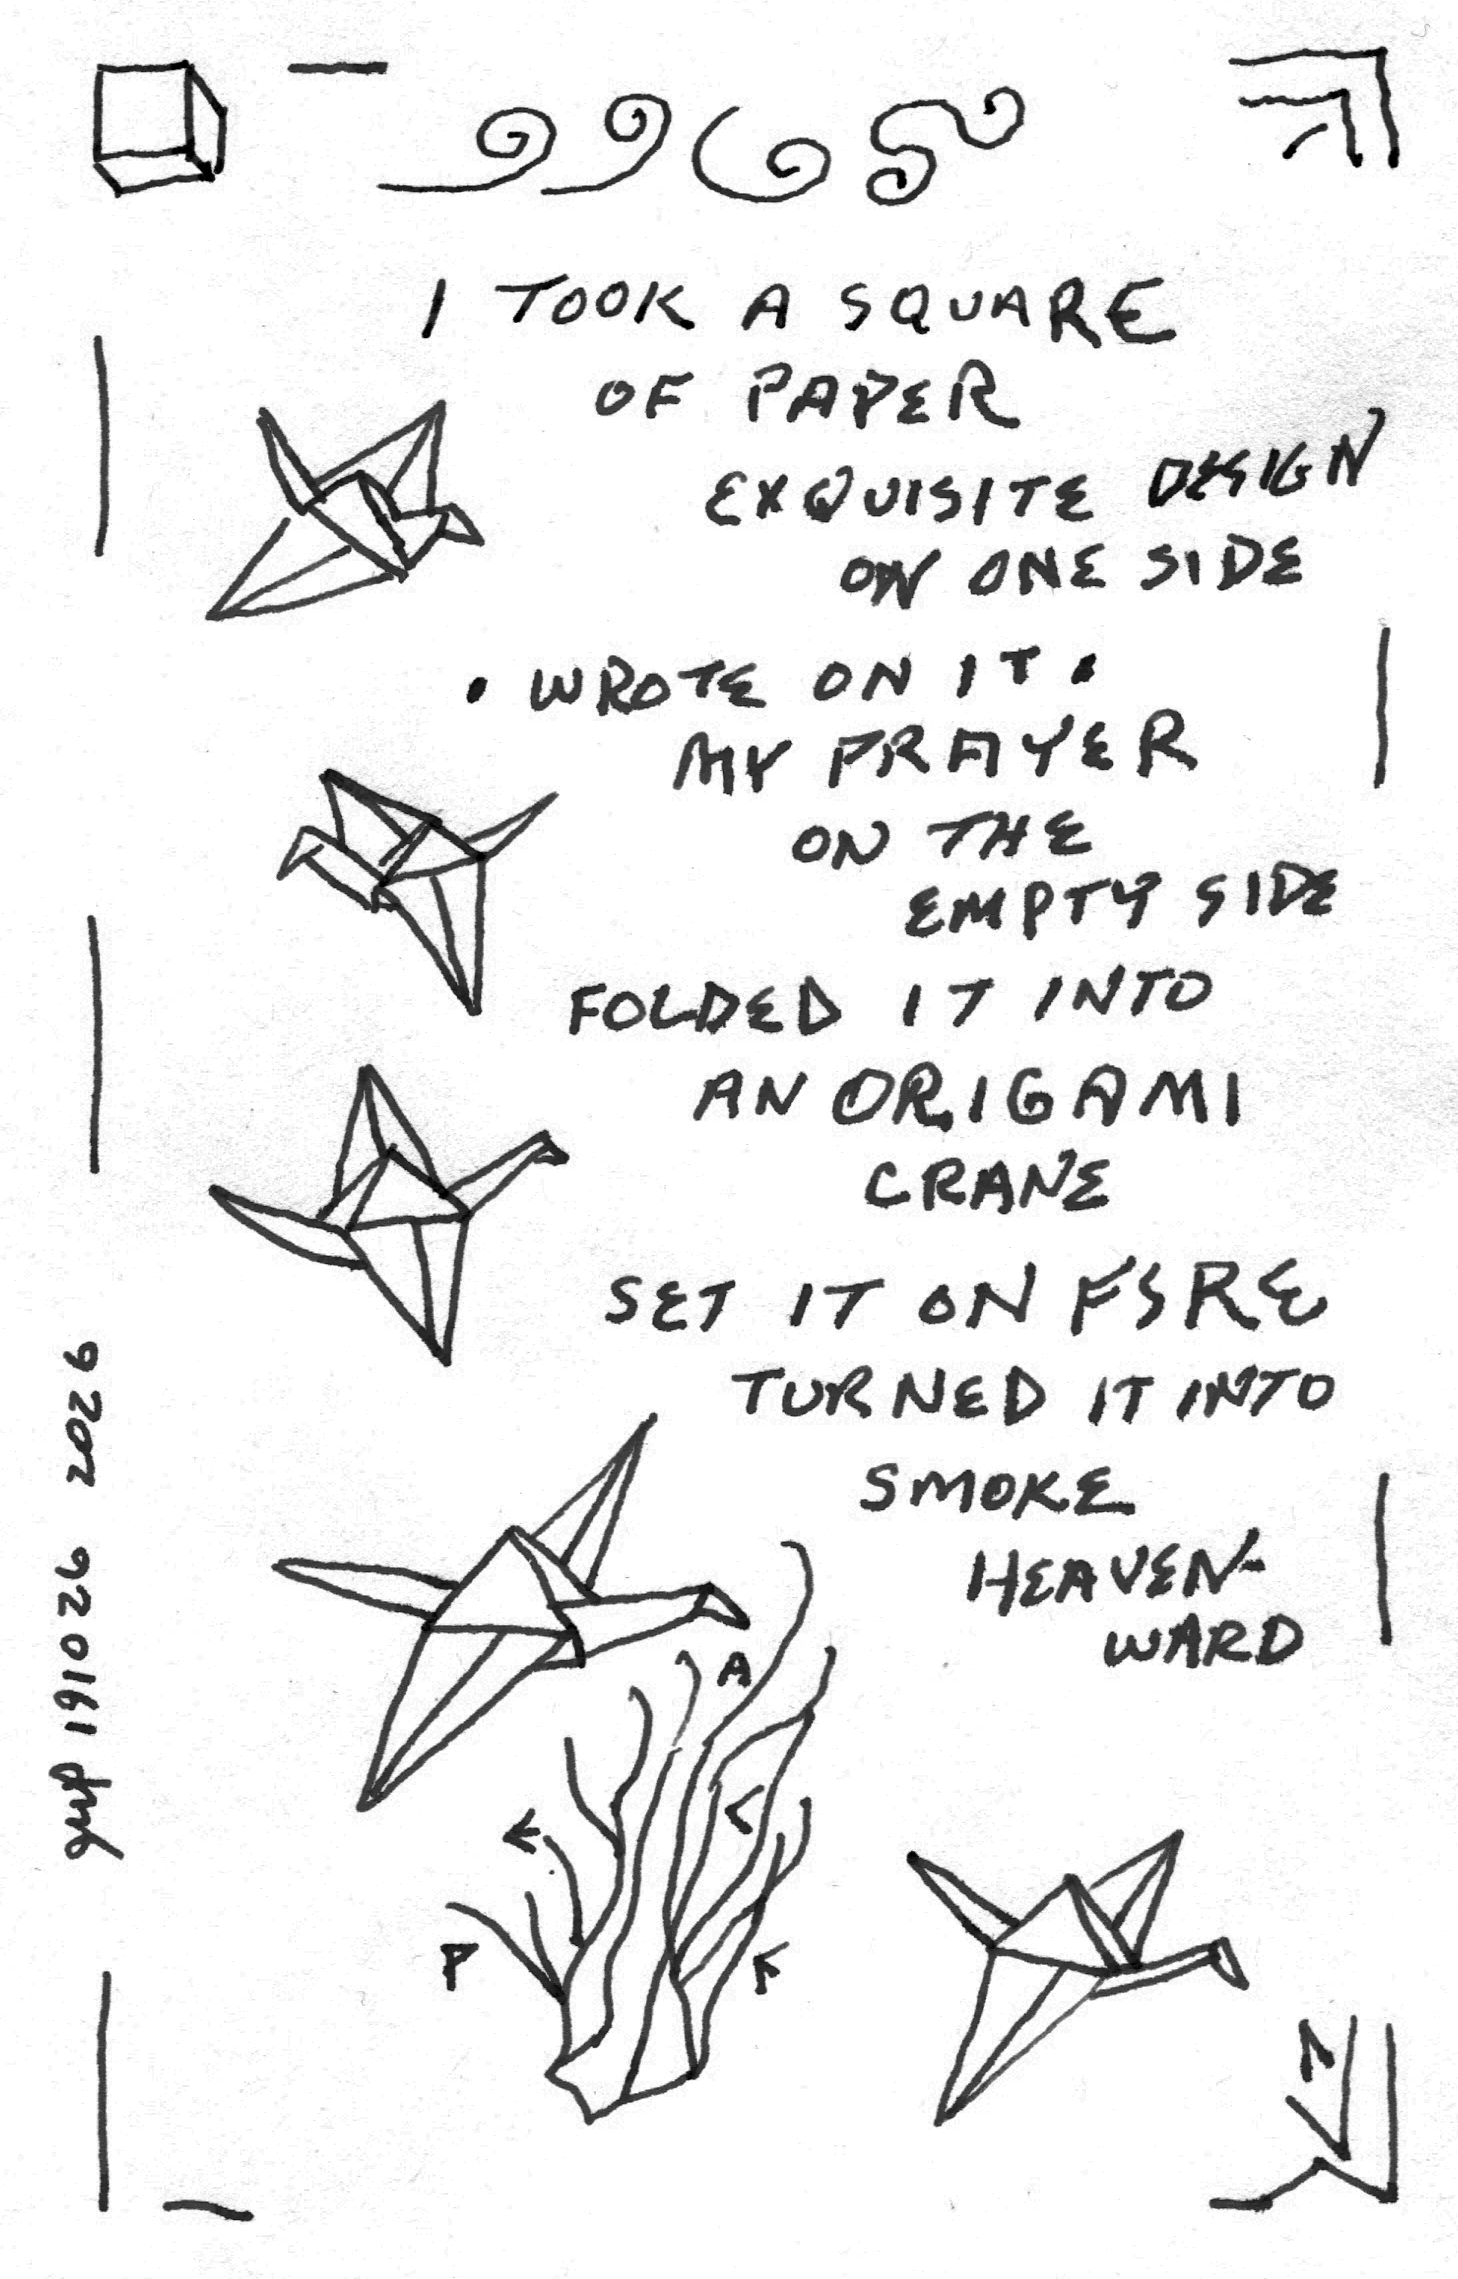 I TOOK A SQUARE
OF PAPER
EXQUISITE DESIGN
ON ONE SIDE
• WROTE ON IT •
MY PRAYER
ON THE
EMPTY SIDE
FOLDED IT INTO
AN ORIGAMI
CRANE
SET IT ON FIRE
TURNED IT INTO
SMOKE
HEAVEN-
WARD
A
P
191026 2026